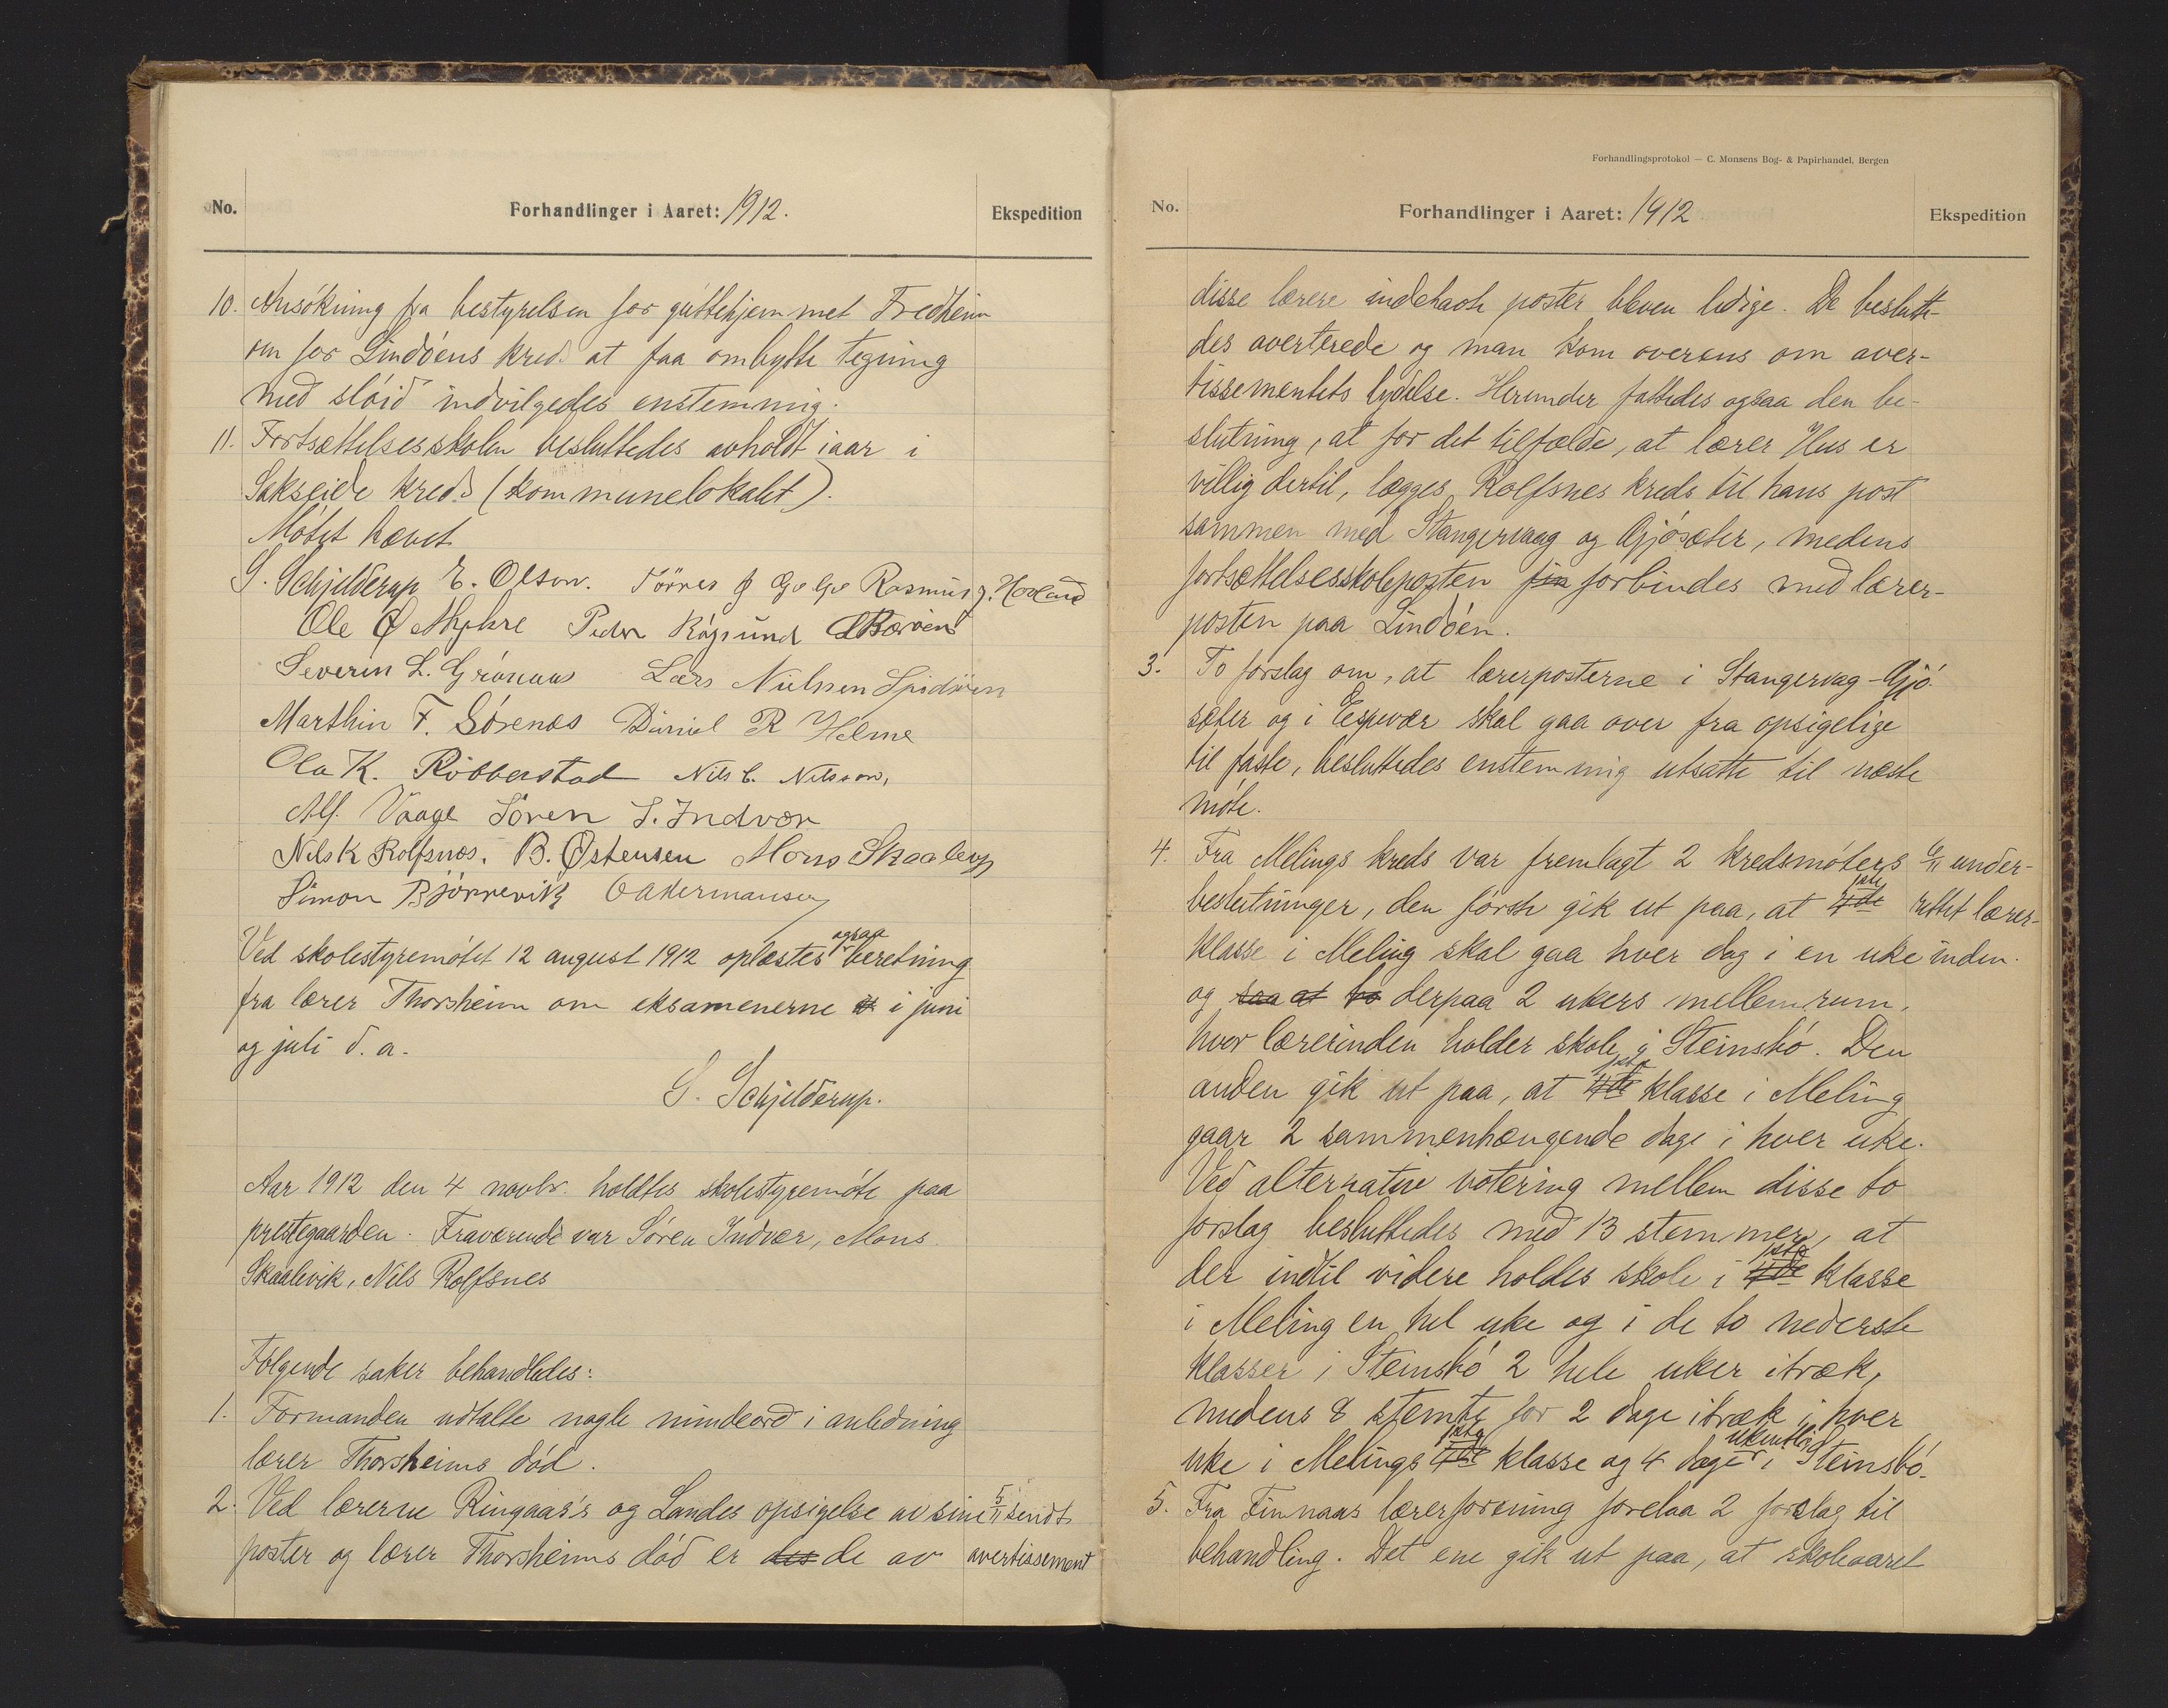 No.
Forhandlinger i Aaret: 1912.
Ekspedition
10. Ansökning fra bestyrelsen for guttehjemmet Fredheim
om for Lindöens kreds at faa ombytte tegning
med slöid indvilgedes enstemmig.
11. Fortsættelsesskolen besluttedes avholdt iaar i
Sakseide kreds (kommunelokalet).
Mötet hævet
S. Schjelderup E. Olson. Törres Rasmus J. Hovland
Ole Ø Myhre Peder Rögsund
Severin L. Grönnaas Lars Nielsen Spidsöen
Marthin F. Sörenæs Daniel R Helme
Ola K. Röbberstad Nils C. Nilsson,
Alf. Vaage Sören S. Indvær
Nils K Rolfsnæs. B. Østensen Mons Skaalevig
Simon Björnevik O Akermansen
Ved skolestyremötet 12 august 1912 oplæstes ogsaa beretning
fra lærer Thorsheim om eksamenerne i juni
og juli d. a.
S. Schjelderup.
Aar 1912 den 4 novbr. holdtes skolestyremöte paa
prestegaarden. Fraværende var Sören Indvær, Mons
Skaalevik, Nils Rolfsnes
Fölgende saker behandledes:
1. Formanden udtalte nogle mindeord i anledning
lærer Thorsheims död.
2. Ved lærerne Ringaas's og Landes opsigelse av sine
poster og lærer Thorsheims död er des de av
5/11 sendt
avertissement
Forhandlingsprotokol — C. Monsens Bog- & Papirhandel, Bergen
No.
Forhandlinger i Aaret: 1912
Ekspedition
disse lærere indehavte poster bleven ledige. De beslutte-
des averterede og man kom overens om aver-
tissementets lydelse. Herunder fattedes ogsaa den be-
slutning, at for det tilfælde, at lærer Hus er
villig dertil, lægges Rolfsnes kreds til hans post
sammen med Stangervaag og Gjösæter, medens
fortsættelsesskoleposten fin forbindes med lærer-
posten paa Lindöen.
3. To forslag om, at lærerposterne i Stangervag-Gjö-
sæter og i Espevær skal gaa over fra opsigelige
til faste, besluttedes enstemmig utsatte til næste
möte.
4. Fra Melings kreds var fremlagt 2 kredsmöters
beslutninger, den förste gik ut paa, at 4de 1ste
6/11 under-
rettet lærer-
inden.
klasse i Meling skal gaa hver dag i en uke
og saa at to derpaa 2 ukers mellemrum,
hvor lærerinden holder skole i Steinsbö. Den
anden gik ut paa, at 4de 1ste klasse i Meling
gaar 2 sammenhængende dage i hver uke.
Ved alternativ votering mellem disse to
forslag besluttedes med 13 stemmer, at
der indtil videre holdes skole i 4de 1ste klasse
i Meling en hel uke og i de to nederste
klasser i Steinsbö 2 hele uker itræk,
medens 8 stemte for 2 dage itræk i hver
uke i Melings 4de 1ste klasse og 4 dage ukentlig i Steinsbö.
5. Fra Finnaas lærerforening forelaa 2 forslag til
behandling. Det ene gik ut paa, at skoleaaret